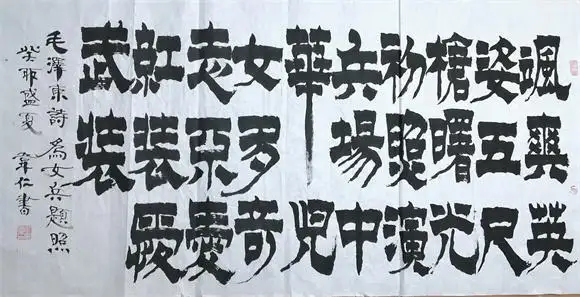 颯爽英
姿五尺
槍曙光
初照演
兵場中
華兒
女多奇
志不愛
紅裝愛
武裝
毛澤東詩 為女兵題照
癸卯盛夏 仁書